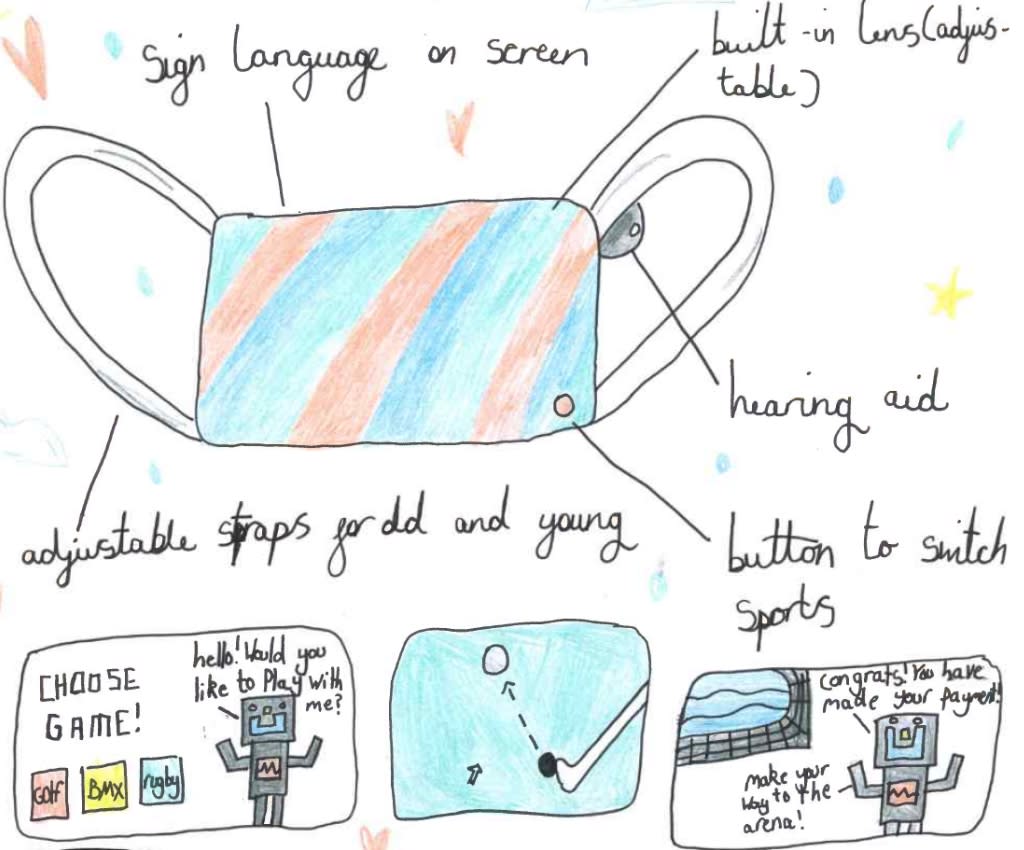 Sign language on screen
built-in lens(adjus-
table)
hearing aid
adjustable straps for old and young
button to switch
sports
CHOOSE
GAME!
hello! Would you
like to Play with
me?
Golf
BMX
rugby
Congrats! You have
made your payment!
make your
way to the
arena!